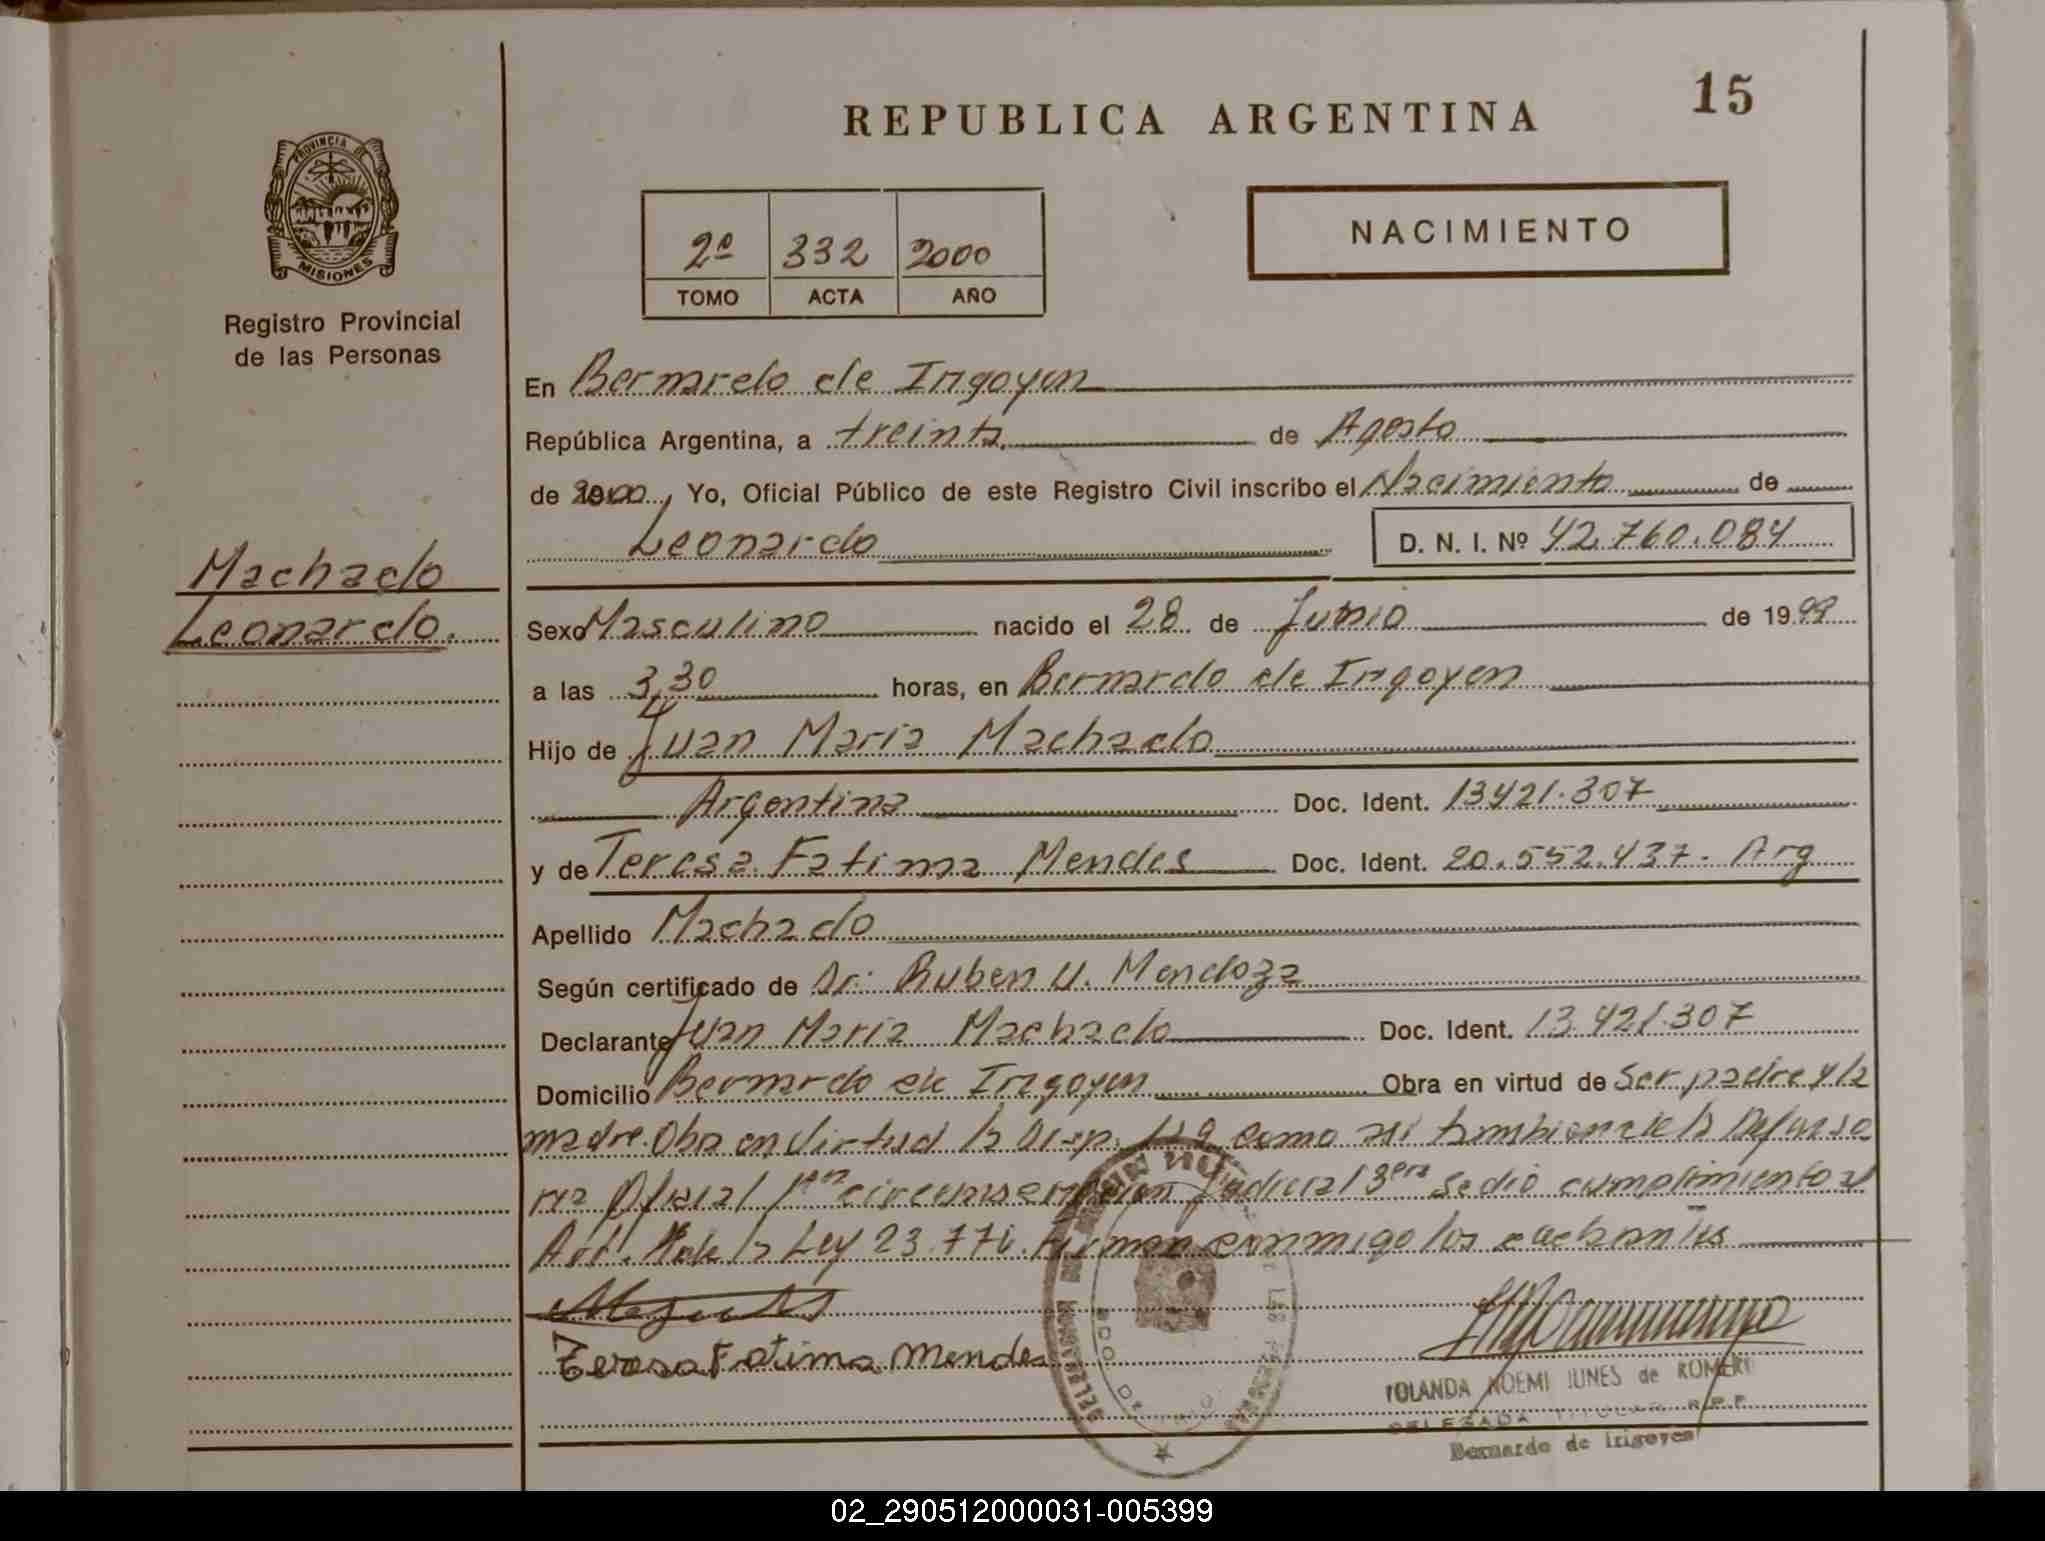 REPUBLICA ARGENTINA
15
PROVINCIA DE
MISIONES
Registro Provincial
de las Personas
2º 332 2000
TOMO ACTA AÑO
NACIMIENTO
En Bernardo de Irigoyen
República Argentina, a treinta de Agosto
de 2000, Yo, Oficial Público de este Registro Civil inscribo el Nacimiento de
Leonardo
D. N. I. Nº 42.760.084
Machado
Leonardo.
Sexo Masculino nacido el 28 de Junio de 1999
a las 3,30 horas, en Bernardo de Irigoyen
Hijo de Juan Maria Machado
Argentina Doc. Ident. 13421.307
y de Teresa Fatima Mendes Doc. Ident. 20.552.437. Arg
Apellido Machado
Según certificado de Dr. Ruben U. Mendoza
Declarante Juan Maria Machado Doc. Ident. 13.421.307
Domicilio Bernardo de Irigoyen Obra en virtud de Ser padre y la
madre. Oba en Virtud la Disp. como asi tambien de la Defenso
ria Oficial 1ra circunscripcion Judicial 3era se dió cumplimiento al
Art. de la Ley 23.776. Firman conmigo los
Teresa Fatima Mendes
YOLANDA NOEMI JUNES de ROMERO
DELEGADA TITULAR R.P.P.
Bernardo de Irigoyen
02_290512000031-005399